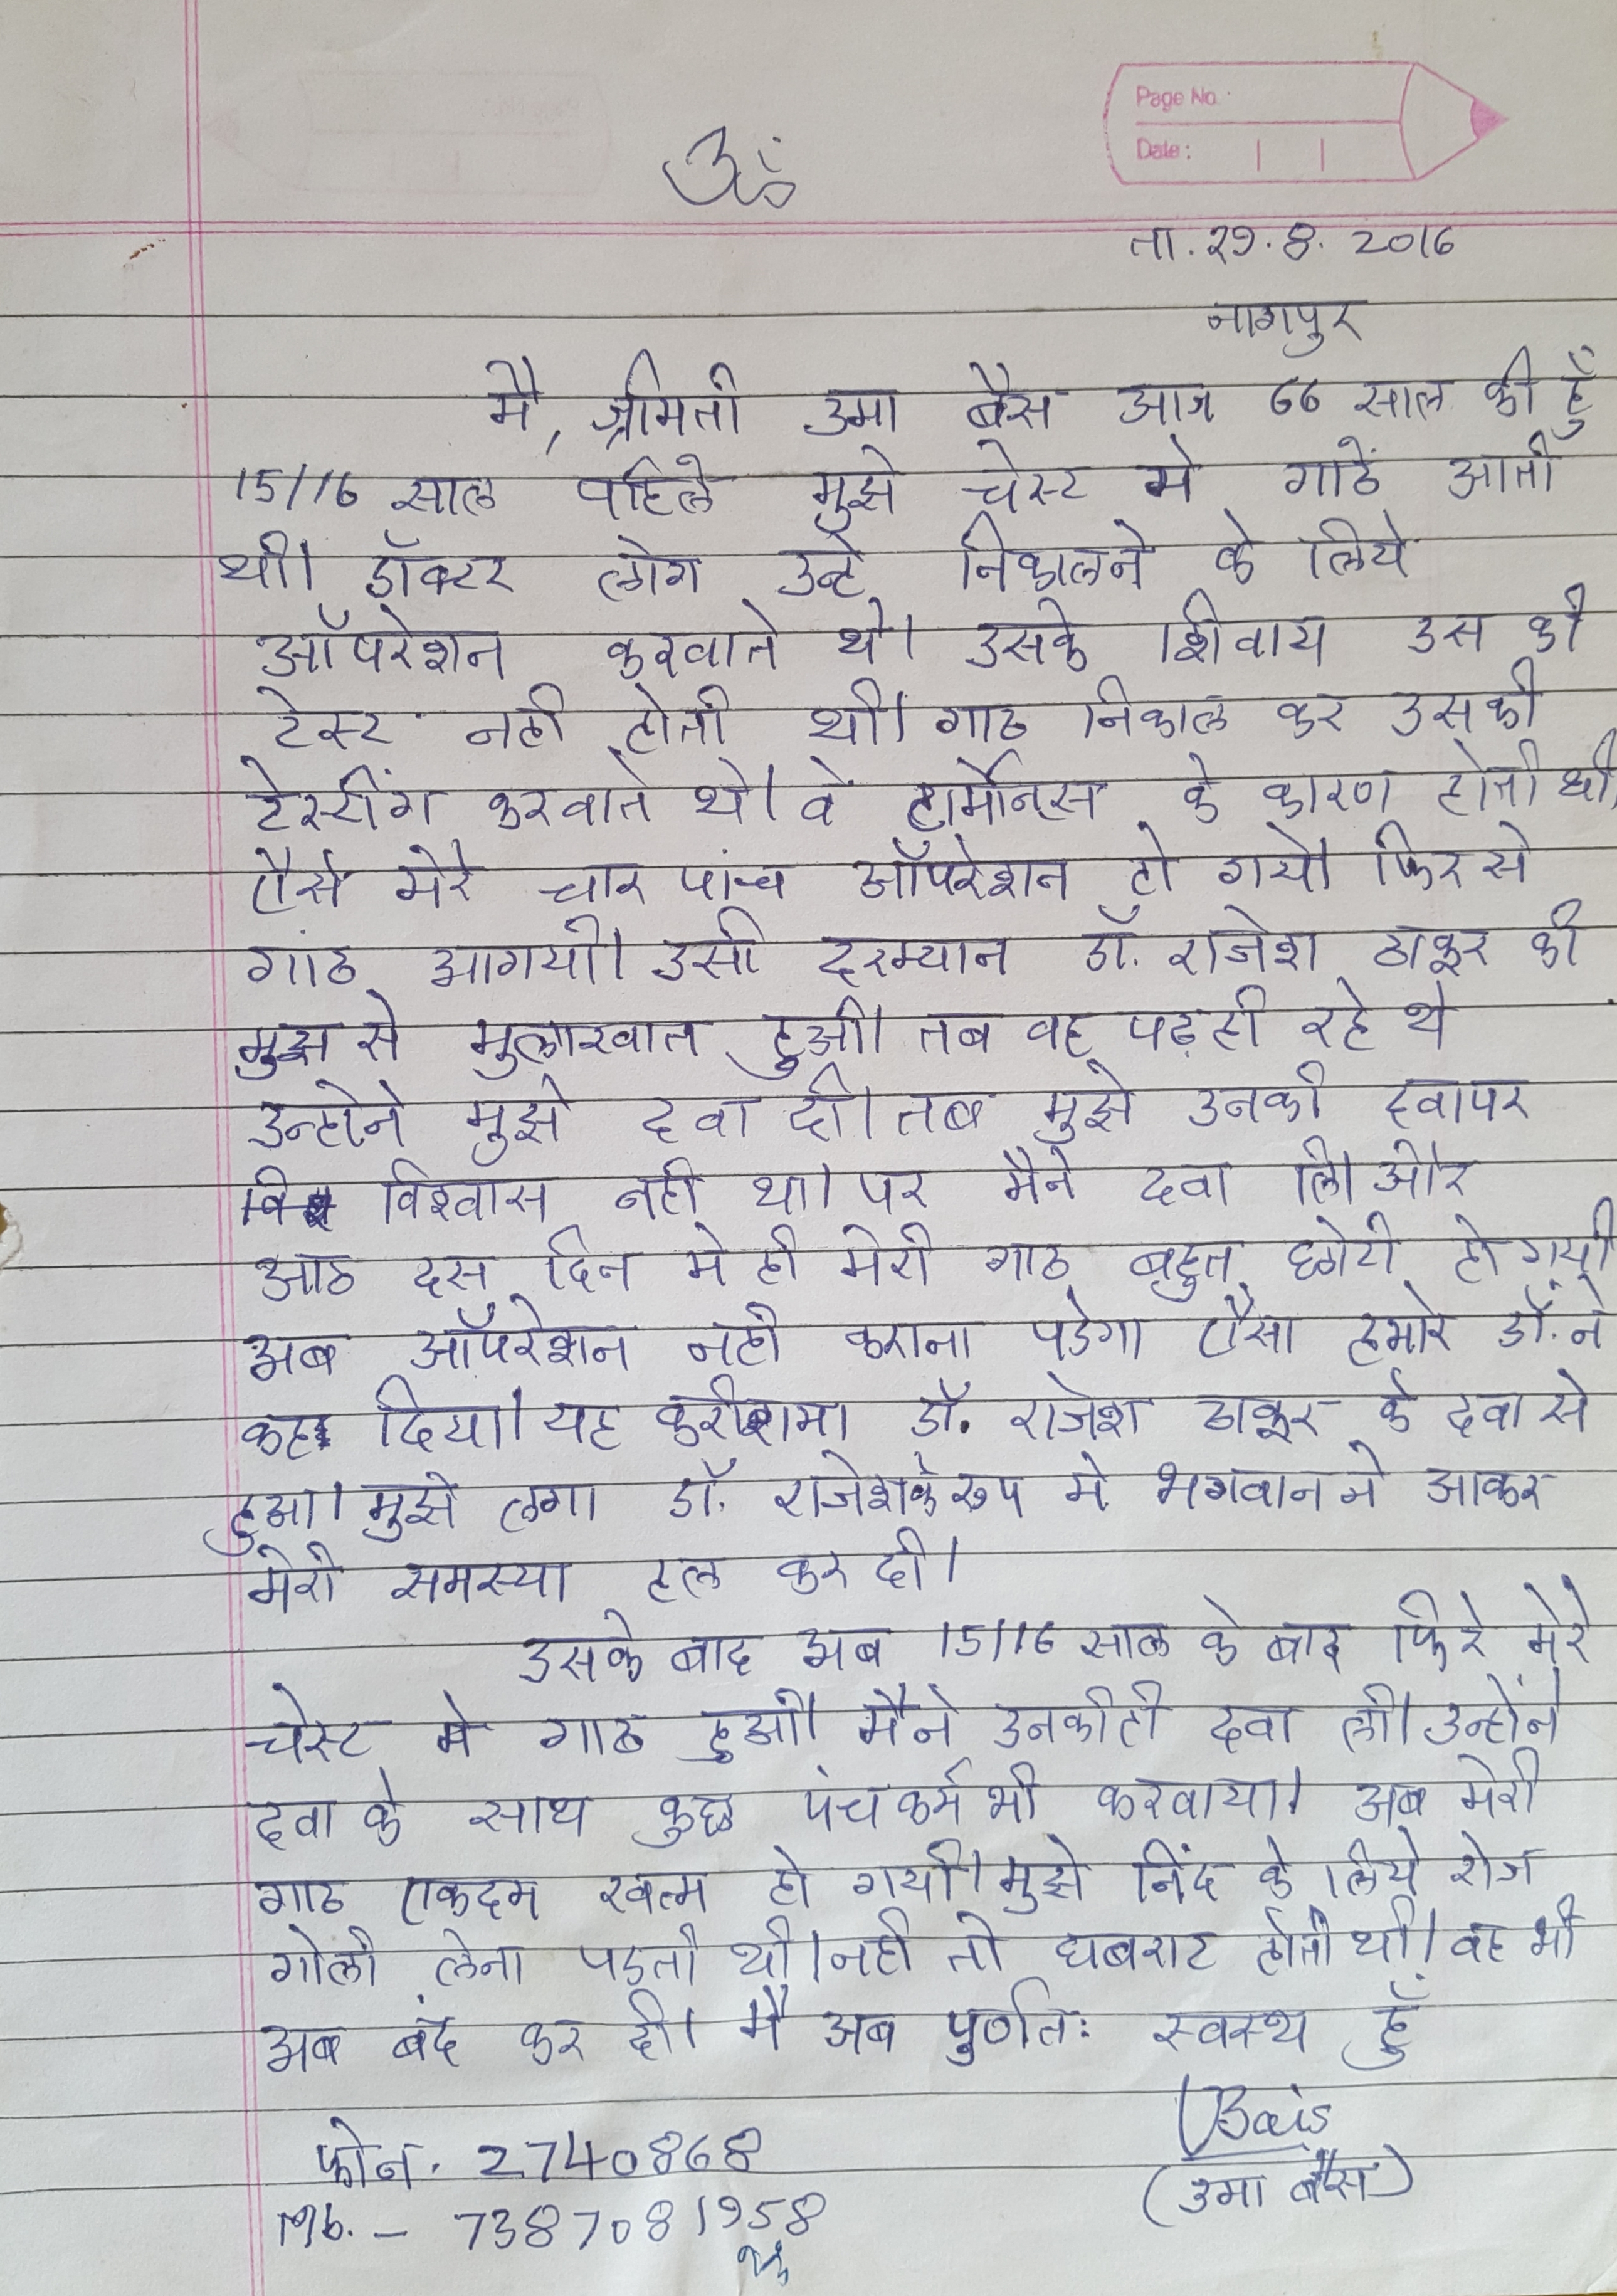 Page No.
Date:
ॐ
ता. २९.8. 2016
नागपुर
मै, श्रीमती उमा बैस आज 66 साल की हूँ
15/16 साल पहिले मुझे चेस्ट मे गाठें आती
थी। डॉक्टर लोग उन्हे निकालने के लिये
ऑपरेशन करवाते थे। उसके शिवाय उस की
टेस्ट नही होती थी। गाठ निकाल कर उसकी
टेस्टींग करवाते थे। वे हार्मोन्स के कारण होती थी,
ऐसे मेरे चार पांच ऑपरेशन हो गये। फिर से
गांठ आगयी। उसी दरम्यान डॉ. राजेश ठाकूर की
मुझ से मुलाखात हुअी। तब वह पढ़ ही रहे थे
उन्होने मुझे दवा दी। तब मुझे उनकी दवापर
विश्वास नही था। पर मैने दवा लि। और
आठ दस दिन मे ही मेरी गाठ बहुत छोटी हो गयी
अब ऑपरेशन नही कराना पडेगा ऐसा हमारे डॉ. ने
कह दिया। यह करीशमा डॉ. राजेश ठाकूर के दवा से
हुआ। मुझे लगा डॉ. राजेशके रुप मे भगवान ने आकर
मेरी समस्या हल कर दी।
उसके बाद अब 15/16 साल के बाद फिरे मेरे
चेस्ट मे गाठ हुअी। मैने उनकीही दवा ली। उन्होंने
दवा के साथ कुछ पंचकर्म भी करवाया। अब मेरी
गाठ एकदम खत्म हो गयी। मुझे निंद के लिये रोज
गोली लेना पडती थी। नही तो घबराट होती थी। वह भी
अब बंद कर दी। मै अब पुर्णतः स्वस्थ हूँ
UBais
(उमा बैस)
फोन. 2740868
Mb. - 7387081958